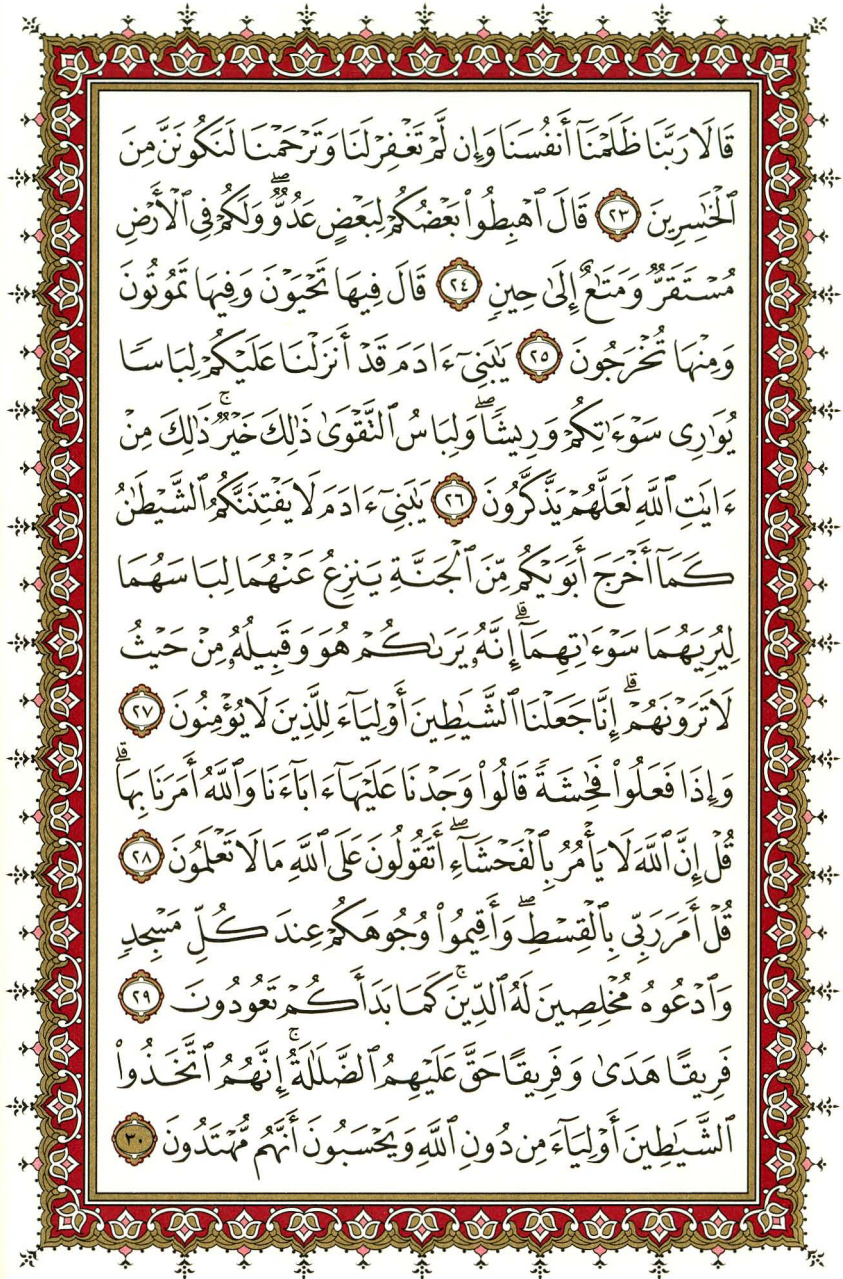 قَالَا رَبَّنَا ظَلَمْنَآ أَنفُسَنَا وَإِن لَّمْ تَغْفِرْ لَنَا وَتَرْحَمْنَا لَنَكُونَنَّ مِنَ
ٱلْخَٰسِرِينَ ٢٣ قَالَ ٱهْبِطُوا۟ بَعْضُكُمْ لِبَعْضٍ عَدُوٌّۖ وَلَكُمْ فِى ٱلْأَرْضِ
مُسْتَقَرٌّ وَمَتَٰعٌ إِلَىٰ حِينٍ ٢٤ قَالَ فِيهَا تَحْيَوْنَ وَفِيهَا تَمُوتُونَ
وَمِنْهَا تُخْرَجُونَ ٢٥ يَٰبَنِىٓ ءَادَمَ قَدْ أَنزَلْنَا عَلَيْكُمْ لِبَاسًا
يُوَٰرِى سَوْءَٰتِكُمْ وَرِيشًاۖ وَلِبَاسُ ٱلتَّقْوَىٰ ذَٰلِكَ خَيْرٌۚ ذَٰلِكَ مِنْ
ءَايَٰتِ ٱللَّهِ لَعَلَّهُمْ يَذَّكَّرُونَ ٢٦ يَٰبَنِىٓ ءَادَمَ لَا يَفْتِنَنَّكُمُ ٱلشَّيْطَٰنُ
كَمَآ أَخْرَجَ أَبَوَيْكُم مِّنَ ٱلْجَنَّةِ يَنزِعُ عَنْهُمَا لِبَاسَهُمَا
لِيُرِيَهُمَا سَوْءَٰتِهِمَآۗ إِنَّهُۥ يَرَىٰكُمْ هُوَ وَقَبِيلُهُۥ مِنْ حَيْثُ
لَا تَرَوْنَهُمْۗ إِنَّا جَعَلْنَا ٱلشَّيَٰطِينَ أَوْلِيَآءَ لِلَّذِينَ لَا يُؤْمِنُونَ ٢٧
وَإِذَا فَعَلُوا۟ فَٰحِشَةً قَالُوا۟ وَجَدْنَا عَلَيْهَآ ءَابَآءَنَا وَٱللَّهُ أَمَرَنَا بِهَاۗ
قُلْ إِنَّ ٱللَّهَ لَا يَأْمُرُ بِٱلْفَحْشَآءِۖ أَتَقُولُونَ عَلَى ٱللَّهِ مَا لَا تَعْلَمُونَ ٢٨
قُلْ أَمَرَ رَبِّى بِٱلْقِسْطِۖ وَأَقِيمُوا۟ وُجُوهَكُمْ عِندَ كُلِّ مَسْجِدٍ
وَٱدْعُوهُ مُخْلِصِينَ لَهُ ٱلدِّينَۚ كَمَا بَدَأَكُمْ تَعُودُونَ ٢٩
فَرِيقًا هَدَىٰ وَفَرِيقًا حَقَّ عَلَيْهِمُ ٱلضَّلَٰلَةُۚ إِنَّهُمُ ٱتَّخَذُوا۟
ٱلشَّيَٰطِينَ أَوْلِيَآءَ مِن دُونِ ٱللَّهِ وَيَحْسَبُونَ أَنَّهُم مُّهْتَدُونَ ٣٠